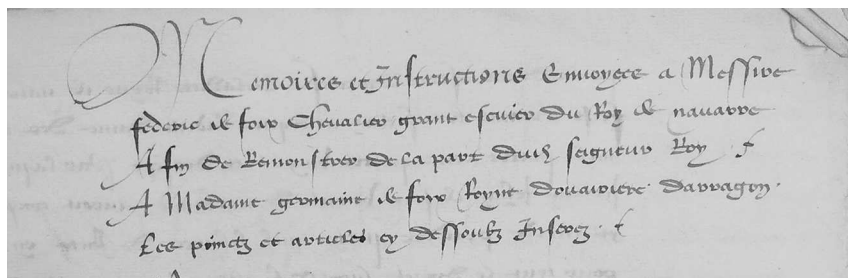 Memoires et Instructions Envoyees a Messire
federic de foix Chevalier grant escuier du Roy de navarre
A fin de Remonstrer de la part dud seigneur Roy
A Madame germaine de foix Royne douairiere darragon.
Les pointz et articles cy dessoubz Inserez.